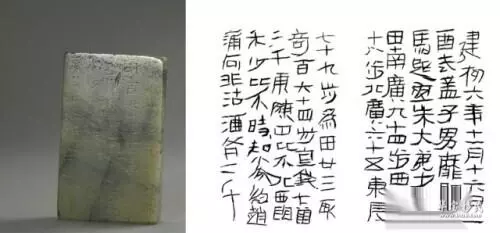 建初六年十一月十六
酉武孟子男靡
馬宜朱大弟少
田南廣九十四步西
十八步北廣六十五東長
七十九步為田廿三畝
奇百六十四步直錢十萬
二千東陳田比分北西南
朱少比分時知券約趙
滿何非沽酒各二千